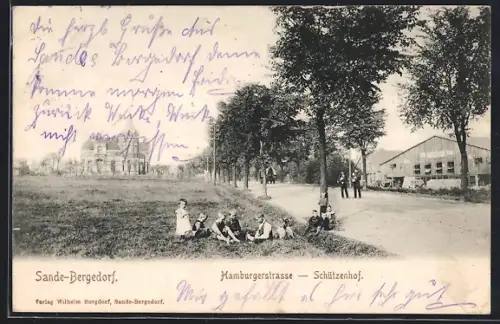 Die herzl. Grüße aus
Sande Bergedorf
komme morgen
zurück
nicht
Sande-Bergedorf.
Hamburgerstrasse — Schützenhof.
Verlag Wilhelm Burgdorf, Sande-Bergedorf.
Mir gefällt es hier sehr gut